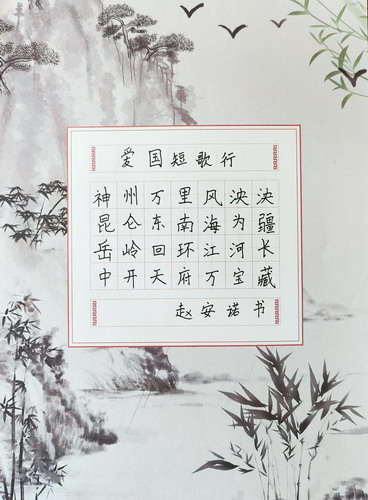 爱国短歌行
神州万里风泱泱
昆仑东南海为疆
岳岭回环江河长
中开天府万宝藏
赵安诺书